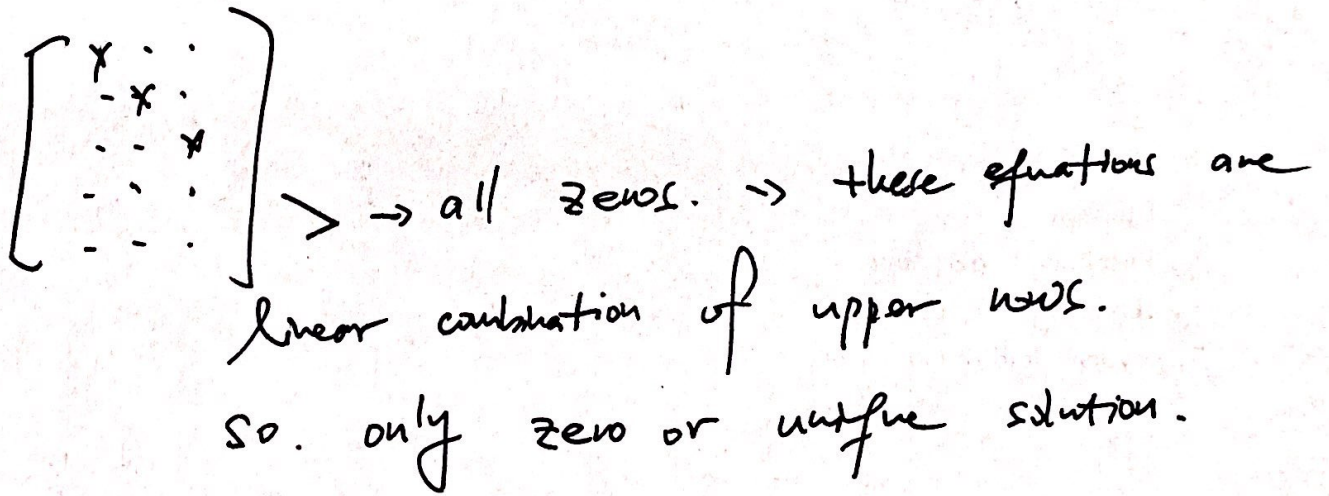 → all zeros. → these equations are
linear combination of upper rows.
so. only zero or unique solution.